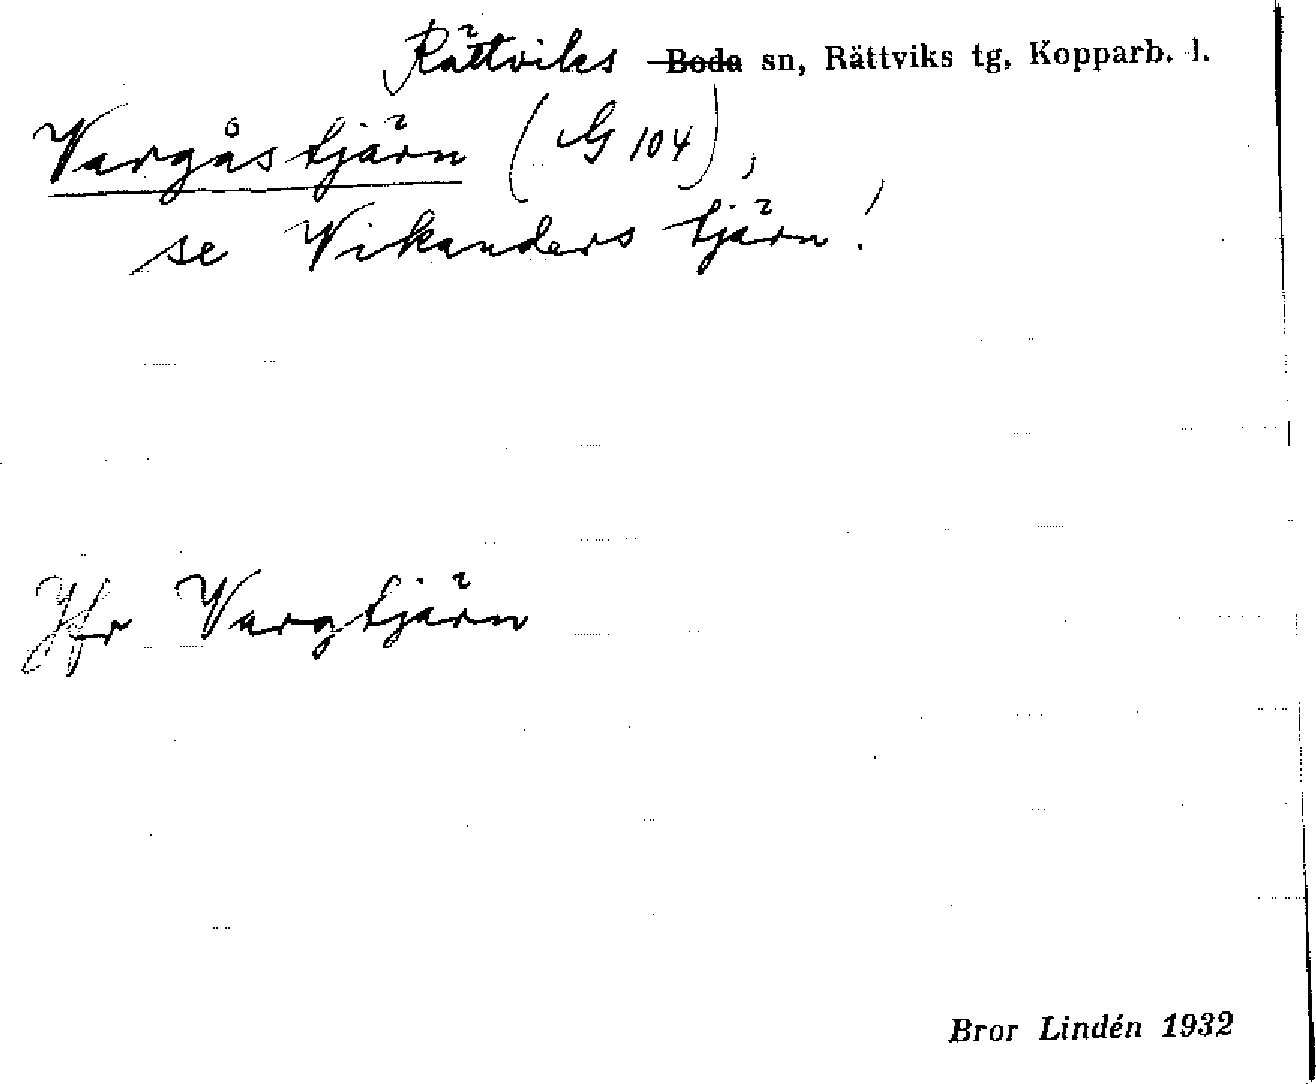 Rättviks Boda sn, Rättviks tg, Kopparb. l.
Vargåstjärn (G 104),
se Vikanders tjärn!
Jfr Vargtjärn
Bror Lindén 1932